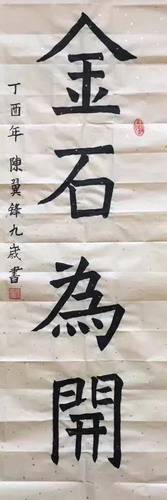 金石為開
丁酉年 陳翼鋒九歲書